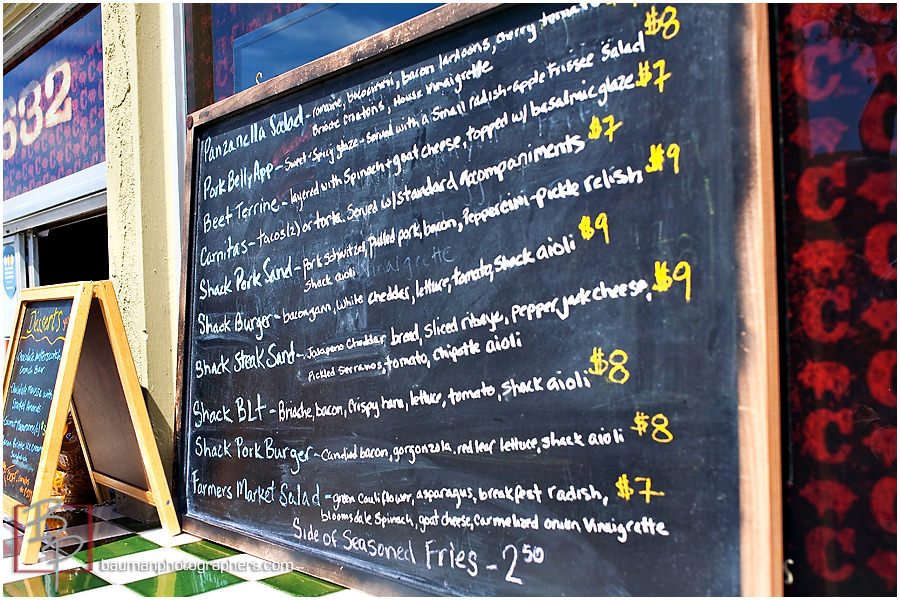 632
Panzanella Salad - romaine, bocconcini, bacon lardoons, cherry tomato $8
Brioche croutons, House Vinaigrette
Pork Belly App - Sweet + Spicy glaze - Served with a Small radish-apple Frissee Salad $7
Beet Terrine - layered with Spinach + goat cheese, topped w/ basalmic glaze $7
Carnitas - tacos (2) or torta. Served w/ standard Accompaniments $9
Shack Pork Sand - Pork Schnitzel, Pulled pork, bacon, Pepperchini-pickle relish, $9
Shack aioli
Vinaigrette
Shack Burger - bacon jam, White cheddar, lettuce, tomato, Shack aioli
Shack Steak Sand - Jalapeno Cheddar bread, sliced ribeye, Pepper jack cheese, $9
Pickled Serranos, tomato, chipotle aioli
Shack BLT - Brioche, bacon, Crispy ham, lettuce, tomato, shack aioli $8
Shack Pork Burger - Candied bacon, gorgonzola, red leaf lettuce, shack aioli $8
Farmers Market Salad - green Cauliflower, asparagus, breakfast radish, $7
bloomsdale Spinach, goat cheese, Carmelized onion Vinaigrette
Side of Seasoned Fries - 2 50
Desserts
Chocolate Butterscotch
Crunch Bar
Chocolate Mousse with
Almonds
Coconut Macaroons
Ice Cream
Sandwich
BP
baumanphotographers.com